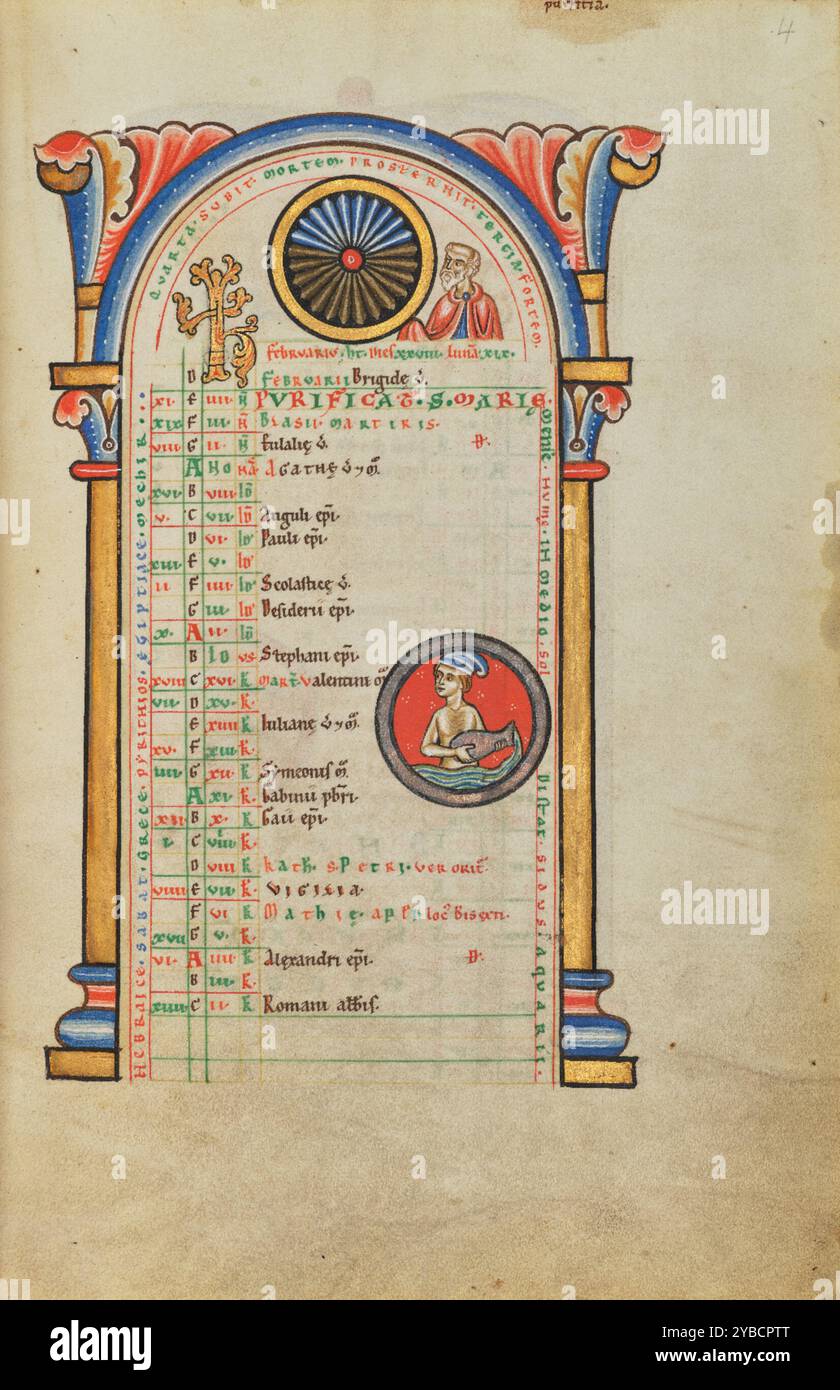 4
QVARTA · SUBIT · MORTEM · PROSTERNIT · TERCIA FORTEM ·
Februarius · ht · dies xxviii · Luna xix ·
D FEBRVARII Brigide v̄.
xi · E iiii · N PVRIFICAT · S · MARIE
xix F iii · N BLASII MARTIRIS ·
viii G ii · N Eulalie v̄. D.
A NO NA AGATHE v̄ ⁊ m̄
xvi · B viii · Id
v · C vii · Id Anguli epi ·
D vi · Id Pauli epi ·
xiii E v · Id
ii F iiii · Id Scolastice v̄.
G iii · Id Desiderii epi ·
x · A ii · Id
B ID VS Stephani epi ·
xviii C xvi · K Mart. Valentini m̄
vii · D xv · K
E xiiii K Iuliane v̄ ⁊ m̄.
xv · F xiii · K
iiii · G xii · K Symeonis m̄.
A xi · K Gabinii pbri ·
xii B x · K Gaii epi ·
i · C viiii K
D viii K KATH · S PETRI ·
viiii E vii · K VIGILIA ·
F vi K Mathie · AP loc bisexti ·
xvii G v · K
vi · A iiii K Alexandri epi · D.
B iii · K
xiiii C ii · K Romani abbis ·
HEBRAICE · SABAT · GRECE · PYRITHIOS · EGIPTIACE · MECHIR
MENSE · NUME · IN MEDIO · SOL
DISTAT · SIDUS · AQUARII ·
alamy
Image ID: 2YBCPTT
www.alamy.com